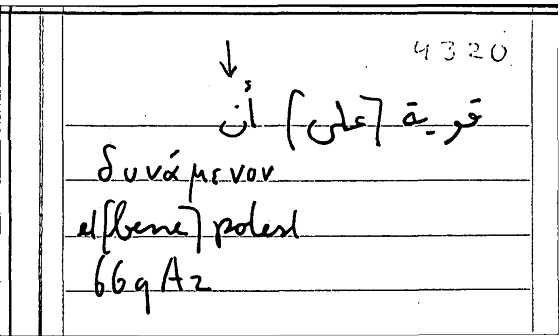 4320
↓
قوية [على] أن
δυνάμενον
et [bene] potest
669 A2